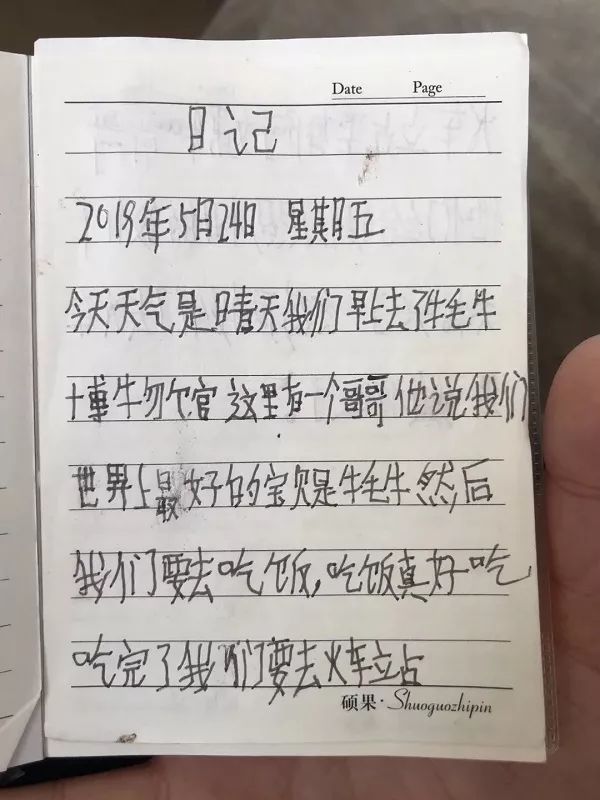 Date Page
日记
2019年5月24日 星期五
今天天气是晴天我们早上去了牦牛
博物馆 这里有一个哥哥 他说我们
世界上最好的宝贝是牦牛 然后
我们要去吃饭,吃饭真好吃
吃完了我们要去火车站
硕果·Shuoguozhipin